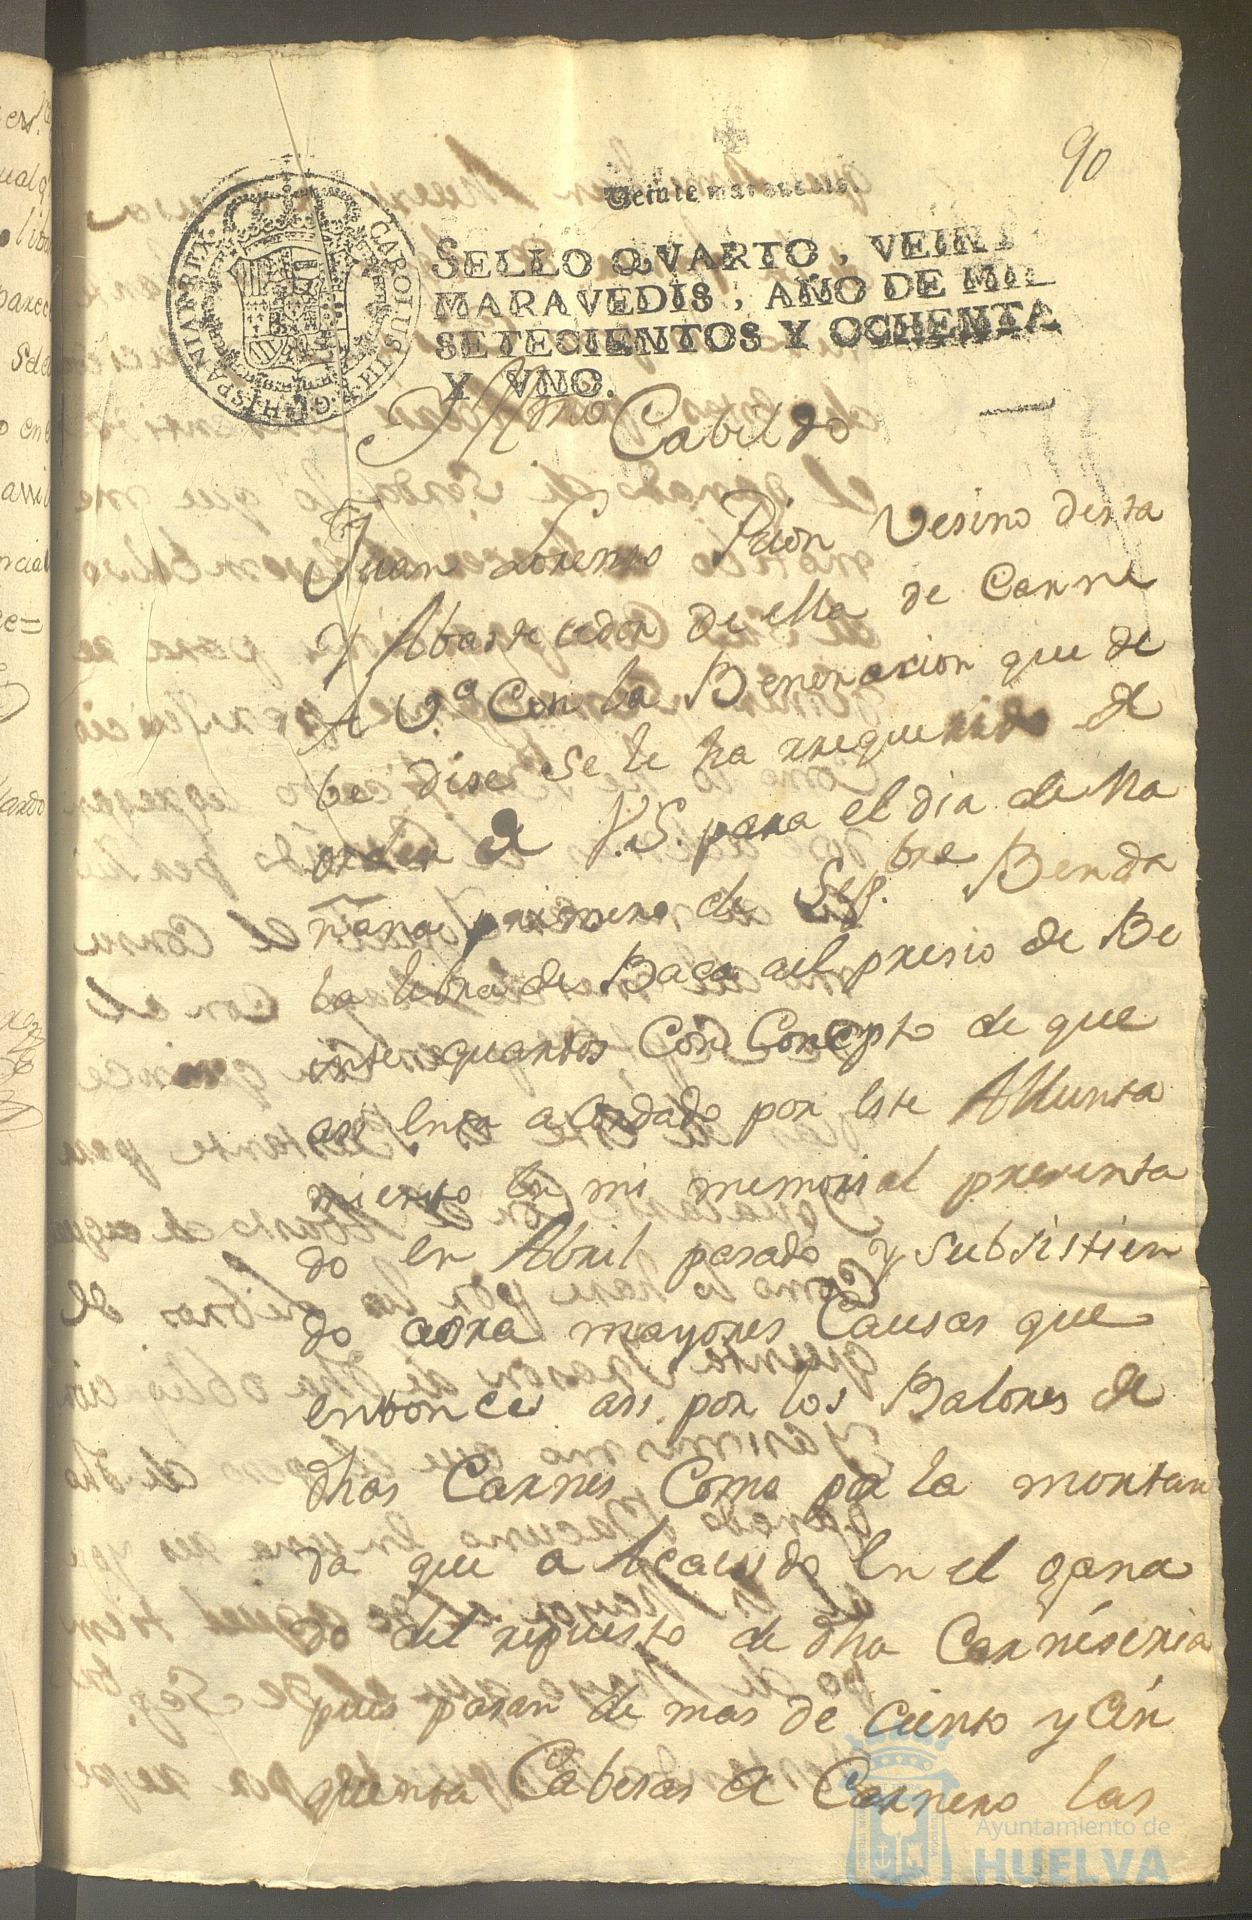 90
Veinte maravedis.
SELLO QVARTO, VEINTE
MARAVEDIS, AÑO DE MIL
SETECIENTOS Y OCHENTA
Y VNO.
CAROLUS III D.G. HISPANIAR. REX.
Ill.mo Cabildo
Juan Lorenso Prion Vesino desta
y Abastecedor de ella de Carne
A V.ª Con la Beneracion que de
be dise se le ha rrequerido de
orden de V.S. para el dia de Ma
ñana primero de Sep.bre Benda
la libra de Baca ael presio de Be
inte quartos Con Concepto de que
asi esta acordado por este Allunta
miento en mi memorial presenta
do en Abril pasado y subsistien
do aora mayores Causas que
entonces asi por los Balores de
dhas Carnes Como por la mortan
da que a acaesido en el gana
do del repuesto de dha Carniseria
pues pasan de mas de ciento y cin
quenta Cabesas de Carnero las
Ayuntamiento de
HUELVA